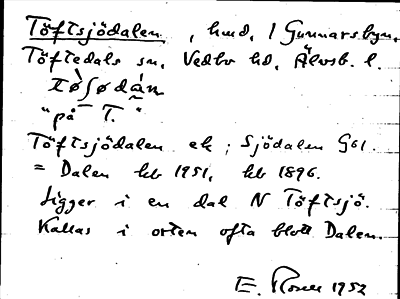 Töftsjödalen, hmd, 1 Gunnarsbyn,
Töftedals sn, Vedbo hd, Älvsb. l.
"på T."
Töftsjödalen ek; Sjödalen G61.
= Dalen kb 1951, kb 1896.
Ligger i en dal N Töftsjö.
Kallas i orten ofta blott Dalen.
E. 1952